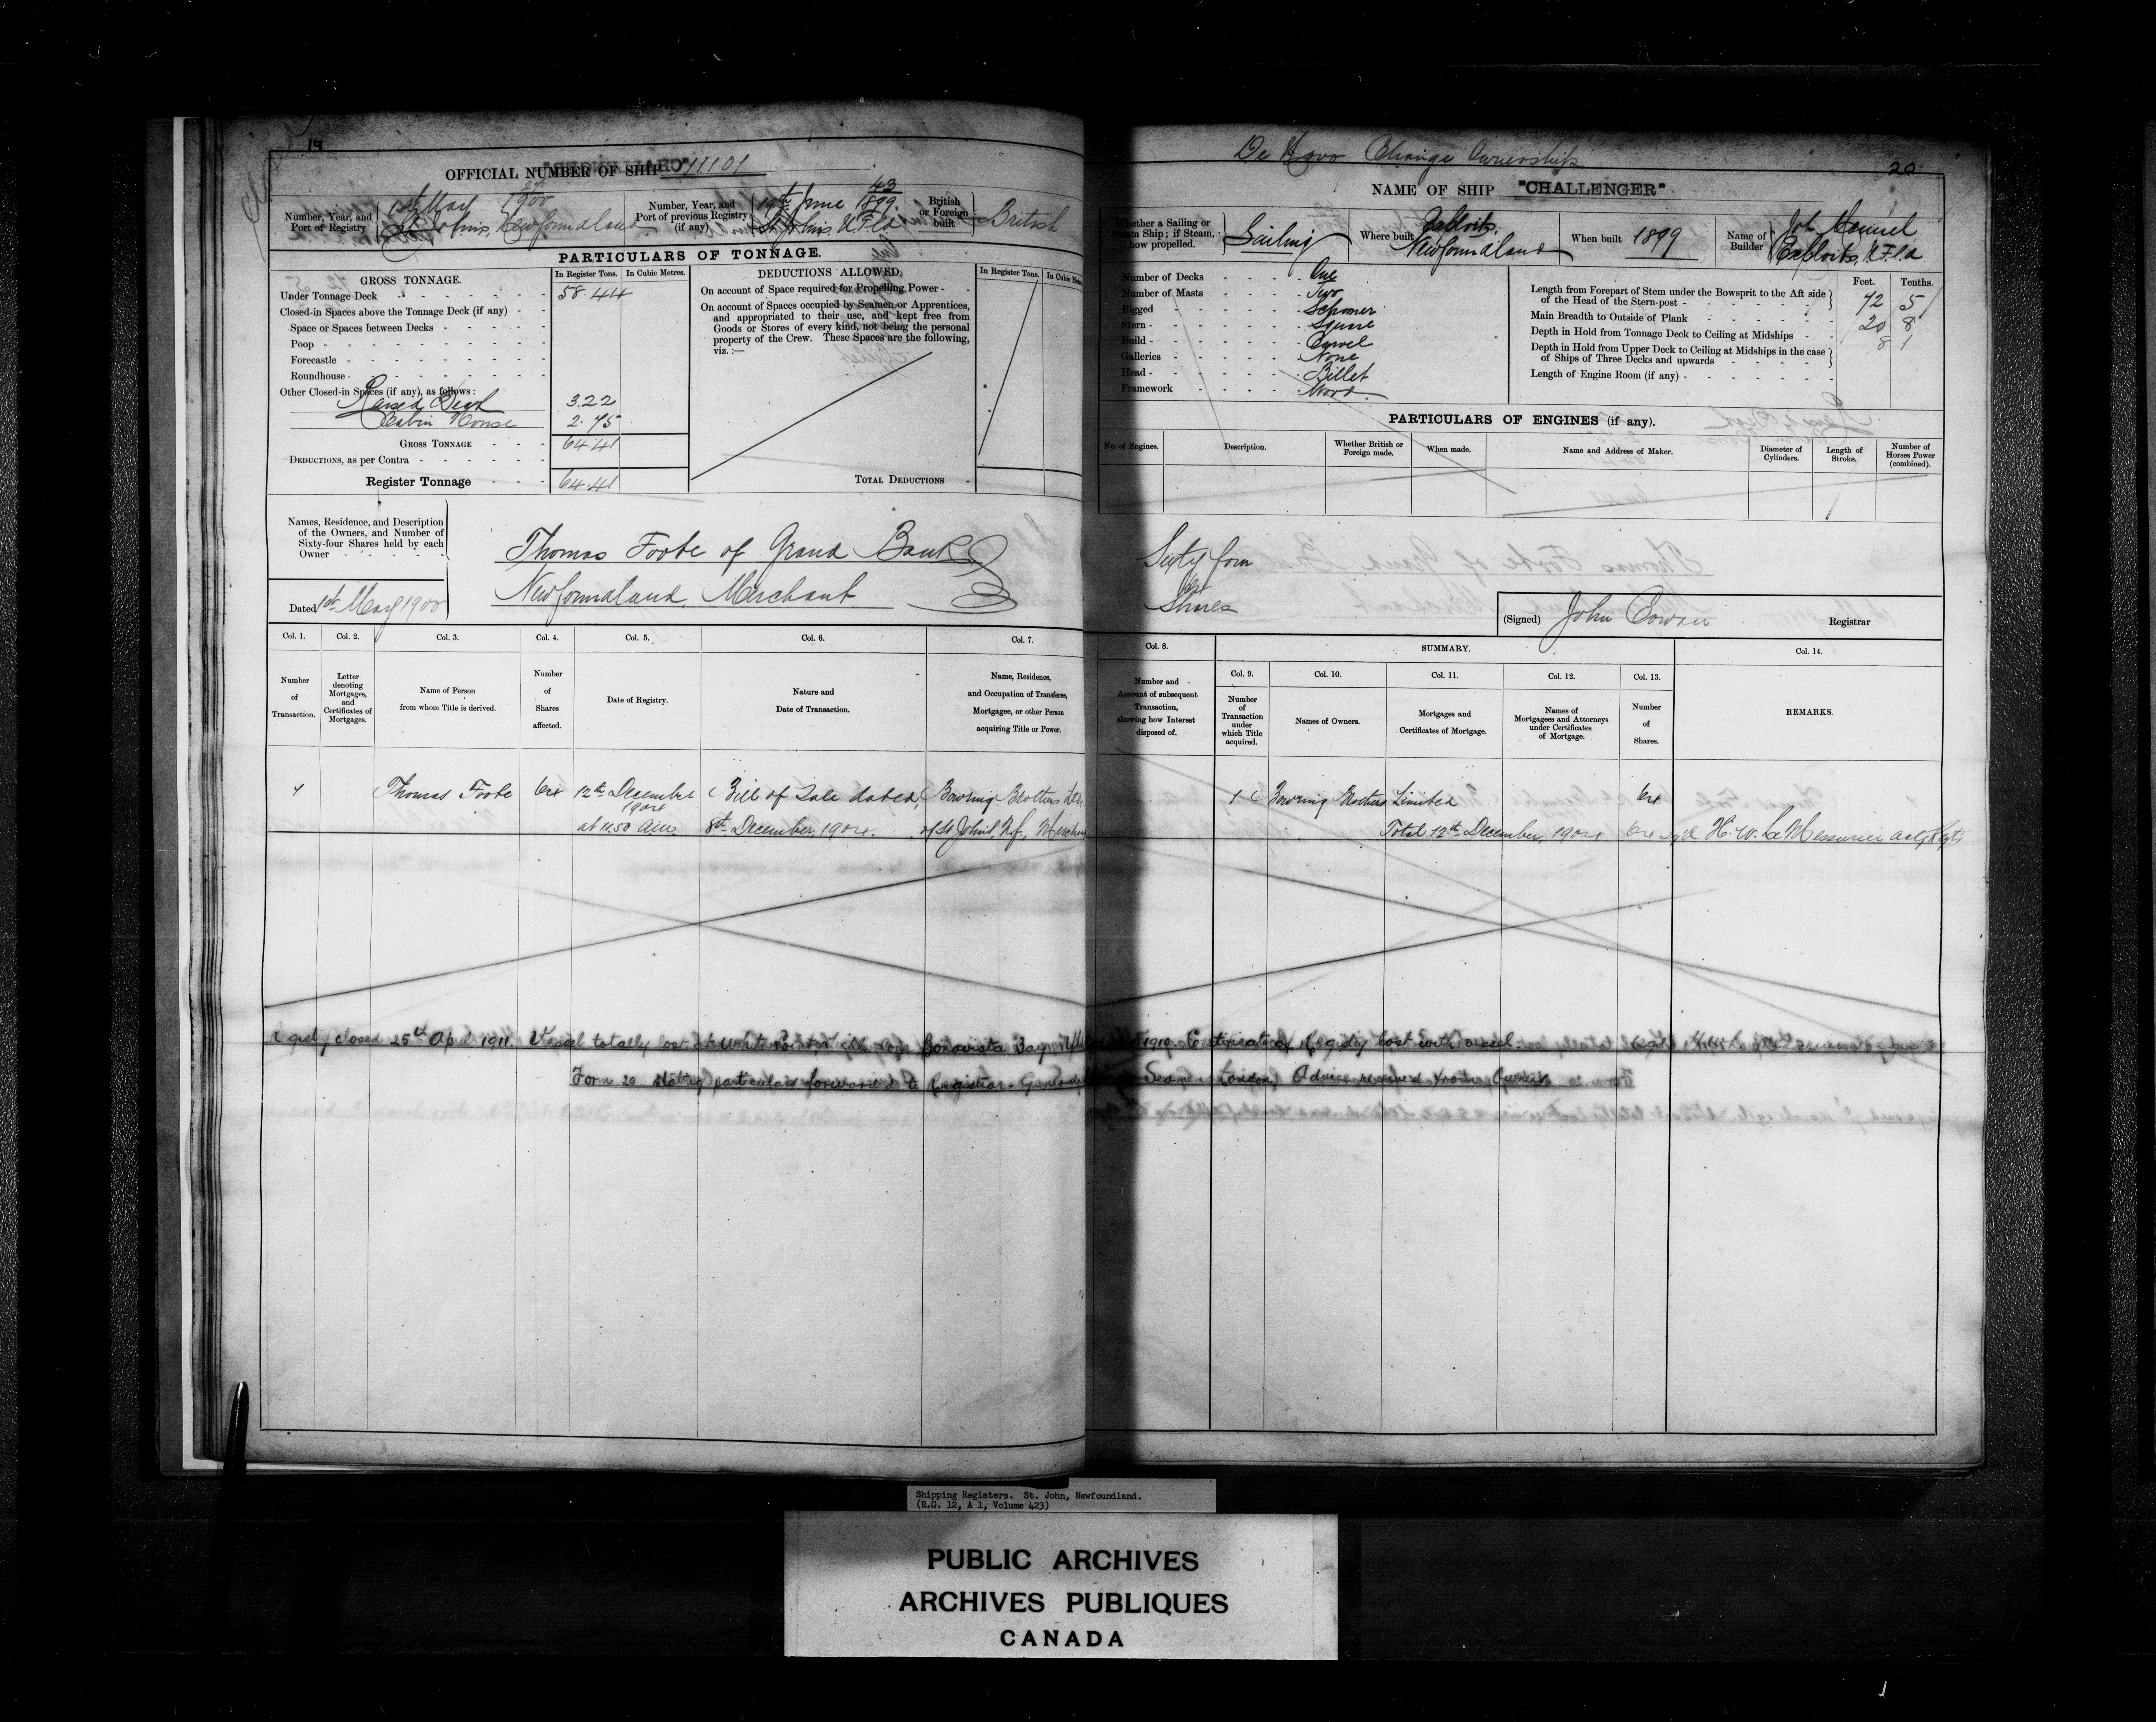 19
OFFICIAL NUMBER OF SHIP 111101
Number, Year, and Port of Registry
24/1900
1st May
St Johns, Newfoundland
Number, Year, and Port of previous Registry (if any)
43
19th June 1899.
St Johns N.F.Ld
British or Foreign built
British
PARTICULARS OF TONNAGE.
GROSS TONNAGE.
In Register Tons.
In Cubic Metres.
Under Tonnage Deck 58.44
Closed-in Spaces above the Tonnage Deck (if any)
Space or Spaces between Decks
Poop
Forecastle
Roundhouse
Other Closed-in Spaces (if any), as follows:
Raised Deck 3.22
Cabin House 2.75
GROSS TONNAGE 64.41
DEDUCTIONS, as per Contra
Register Tonnage 64.41
DEDUCTIONS ALLOWED,
In Register Tons.
In Cubic Metres
On account of Space required for Propelling Power -
On account of Spaces occupied by Seamen or Apprentices,
and appropriated to their use, and kept free from
Goods or Stores of every kind, not being the personal
property of the Crew. These Spaces are the following,
viz. :—
TOTAL DEDUCTIONS
Names, Residence, and Description
of the Owners, and Number of
Sixty-four Shares held by each
Owner
Dated 1st May 1900
Thomas Foote of Grand Bank
Newfoundland, Merchant
Col. 1.
Number of Transaction.
Col. 2.
Letter denoting Mortgages, and Certificates of Mortgages.
Col. 3.
Name of Person from whom Title is derived.
Col. 4.
Number of Shares affected.
Col. 5.
Date of Registry.
Col. 6.
Nature and Date of Transaction.
Col. 7.
Name, Residence, and Occupation of Transferee, Mortgagee, or other Person acquiring Title or Power.
1 Thomas Foote 64 12th December Bill of Sale dated Bowring Brothers Ltd.
1904
at 11.50 A.M. 8th December, 1904. of St John's, Nf, Merchants
De Novo Change Ownership
20
NAME OF SHIP "CHALLENGER"
Whether a Sailing or Steam Ship; if Steam, how propelled.
Sailing
Where built
Exploits,
Newfoundland
When built 1899
Name of Builder
Manuel
Exploits, N.F.Ld
Number of Decks One
Number of Masts Two
Rigged Schooner
Stern Square
Build Carvel
Galleries None
Head Billet
Framework Wood.
Feet. Tenths.
Length from Forepart of Stem under the Bowsprit to the Aft side
of the Head of the Stern-post 72 5
Main Breadth to Outside of Plank 20 8
Depth in Hold from Tonnage Deck to Ceiling at Midships 8 1
Depth in Hold from Upper Deck to Ceiling at Midships in the case
of Ships of Three Decks and upwards
Length of Engine Room (if any)
PARTICULARS OF ENGINES (if any).
No. of Engines.
Description.
Whether British or Foreign made.
When made.
Name and Address of Maker.
Diameter of Cylinders.
Length of Stroke.
Number of Horses Power (combined).
Sixty four
Shares
(Signed) John Cowan Registrar
Col. 8.
Number and Account of subsequent Transaction, showing how Interest disposed of.
SUMMARY.
Col. 9.
Number of Transaction under which Title acquired.
Col. 10.
Names of Owners.
Col. 11.
Mortgages and Certificates of Mortgage.
Col. 12.
Names of Mortgagees and Attorneys under Certificates of Mortgage.
Col. 13.
Number of Shares.
Col. 14.
REMARKS.
1 Bowring Brothers Limited 64
Total 12th December, 1904 64 sgd H. W. LeMessurier actg Regtr
Registry closed 25th April 1911. Vessel totally lost at White Point Bonavista Bay Nfld 1910. Certificate of Registry lost with vessel.
Form 20 stating particulars forwarded to Registrar-General Seamen London, Advice received from Owners
Shipping Registers. St. John, Newfoundland.
(R.G. 12, A 1, Volume 423)
PUBLIC ARCHIVES
ARCHIVES PUBLIQUES
CANADA